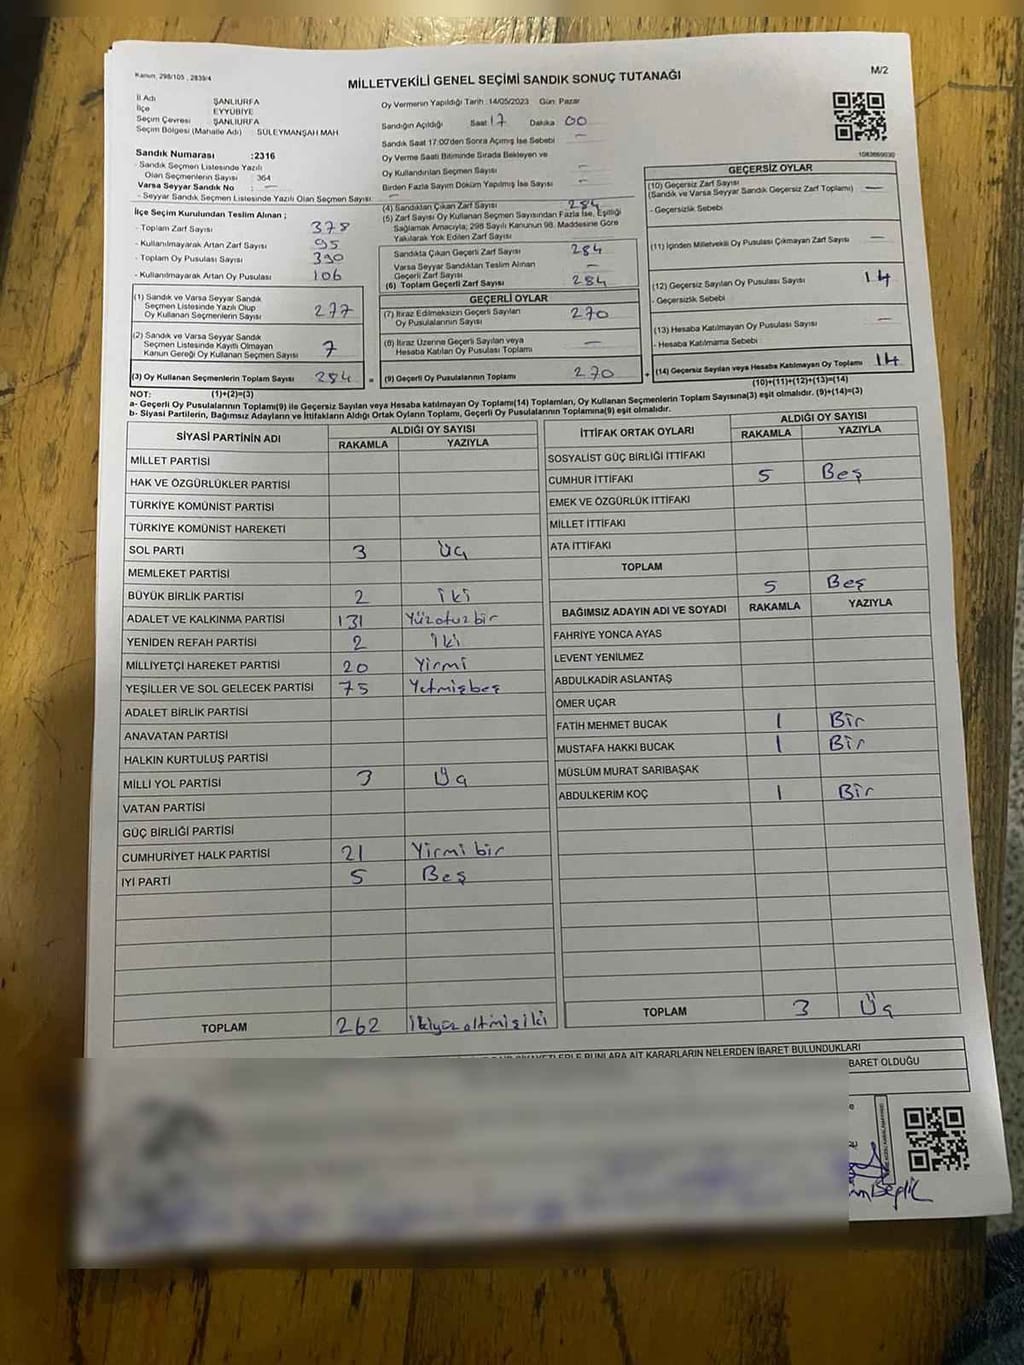 Kanun; 298/105 , 2839/4
MİLLETVEKİLİ GENEL SEÇİMİ SANDIK SONUÇ TUTANAĞI
M/2
İl Adı ŞANLIURFA
İlçe EYYÜBİYE
Seçim Çevresi ŞANLIURFA
Seçim Bölgesi (Mahalle Adı) SÜLEYMANŞAH MAH
Sandık Numarası :2316
- Sandık Seçmen Listesinde Yazılı
Olan Seçmenlerin Sayısı : 364
Varsa Seyyar Sandık No : —
- Seyyar Sandık Seçmen Listesinde Yazılı Olan Seçmen Sayısı:
İlçe Seçim Kurulundan Teslim Alınan ;
- Toplam Zarf Sayısı 378
- Kullanılmayarak Artan Zarf Sayısı 95
- Toplam Oy Pusulası Sayısı 390
- Kullanılmayarak Artan Oy Pusulası 106
(1) Sandık ve Varsa Seyyar Sandık
Seçmen Listesinde Yazılı Olup
Oy Kullanan Seçmenlerin Sayısı 277
(2) Sandık ve Varsa Seyyar Sandık
Seçmen Listesinde Kayıtlı Olmayan
Kanun Gereği Oy Kullanan Seçmen Sayısı 7
(3) Oy Kullanan Seçmenlerin Toplam Sayısı 284
Oy Vermenin Yapıldığı Tarih :14/05/2023 Gün: Pazar
Sandığın Açıldığı Saat 17 Dakika 00
Sandık Saat 17:00'den Sonra Açılmış İse Sebebi —
Oy Verme Saati Bitiminde Sırada Bekleyen ve
Oy Kullandırılan Seçmen Sayısı —
Birden Fazla Sayım Döküm Yapılmış İse Sayısı —
(4) Sandıktan Çıkan Zarf Sayısı 284
(5) Zarf Sayısı Oy Kullanan Seçmen Sayısından Fazla İse, Eşitliği
Sağlamak Amacıyla; 298 Sayılı Kanunun 98. Maddesine Göre
Yakılarak Yok Edilen Zarf Sayısı
Sandıkta Çıkan Geçerli Zarf Sayısı 284
Varsa Seyyar Sandıktan Teslim Alınan
Geçerli Zarf Sayısı —
(6) Toplam Geçerli Zarf Sayısı 284
GEÇERLİ OYLAR
(7) İtiraz Edilmeksizin Geçerli Sayılan
Oy Pusulalarının Sayısı 270
(8) İtiraz Üzerine Geçerli Sayılan veya
Hesaba Katılan Oy Pusulası Toplamı —
= (9) Geçerli Oy Pusulalarının Toplamı 270
GEÇERSİZ OYLAR
(10) Geçersiz Zarf Sayısı
(Sandık ve Varsa Seyyar Sandık Geçersiz Zarf Toplamı) —
- Geçersizlik Sebebi
(11) İçinden Milletvekili Oy Pusulası Çıkmayan Zarf Sayısı —
(12) Geçersiz Sayılan Oy Pusulası Sayısı 14
- Geçersizlik Sebebi
(13) Hesaba Katılmayan Oy Pusulası Sayısı —
- Hesaba Katılmama Sebebi
+ (14) Geçersiz Sayılan veya Hesaba Katılmayan Oy Toplamı 14
NOT: (1)+(2)=(3) (10)+(11)+(12)+(13)=(14)
a- Geçerli Oy Pusulalarının Toplamı(9) ile Geçersiz Sayılan veya Hesaba katılmayan Oy Toplamı(14) Toplamları, Oy Kullanan Seçmenlerin Toplam Sayısına(3) eşit olmalıdır. (9)+(14)=(3)
b- Siyasi Partilerin, Bağımsız Adayların ve İttifakların Aldığı Ortak Oyların Toplamı, Geçerli Oy Pusulalarının Toplamına(9) eşit olmalıdır.
SİYASİ PARTİNİN ADI ALDIĞI OY SAYISI
RAKAMLA YAZIYLA
MİLLET PARTİSİ
HAK VE ÖZGÜRLÜKLER PARTİSİ
TÜRKİYE KOMÜNİST PARTİSİ
TÜRKİYE KOMÜNİST HAREKETİ
SOL PARTİ 3 Üç
MEMLEKET PARTİSİ
BÜYÜK BİRLİK PARTİSİ 2 iki
ADALET VE KALKINMA PARTİSİ 131 Yüzotuzbir
YENİDEN REFAH PARTİSİ 2 İki
MİLLİYETÇİ HAREKET PARTİSİ 20 Yirmi
YEŞİLLER VE SOL GELECEK PARTİSİ 75 Yetmişbeş
ADALET BİRLİK PARTİSİ
ANAVATAN PARTİSİ
HALKIN KURTULUŞ PARTİSİ
MİLLİ YOL PARTİSİ 3 Üç
VATAN PARTİSİ
GÜÇ BİRLİĞİ PARTİSİ
CUMHURİYET HALK PARTİSİ 21 Yirmi bir
İYİ PARTİ 5 Beş
TOPLAM 262 ikiyüzaltmışiki
İTTİFAK ORTAK OYLARI ALDIĞI OY SAYISI
RAKAMLA YAZIYLA
SOSYALİST GÜÇ BİRLİĞİ İTTİFAKI
CUMHUR İTTİFAKI 5 Beş
EMEK VE ÖZGÜRLÜK İTTİFAKI
MİLLET İTTİFAKI
ATA İTTİFAKI
TOPLAM 5 Beş
BAĞIMSIZ ADAYIN ADI VE SOYADI RAKAMLA YAZIYLA
FAHRİYE YONCA AYAS
LEVENT YENİLMEZ
ABDULKADİR ASLANTAŞ
ÖMER UÇAR
FATİH MEHMET BUCAK 1 Bir
MUSTAFA HAKKI BUCAK 1 Bir
MÜSLÜM MURAT SARIBAŞAK
ABDULKERİM KOÇ 1 Bir
TOPLAM 3 Üç
BUNLARA AİT KARARLARIN NELERDEN İBARET BULUNDUKLARI
BARET OLDUĞU